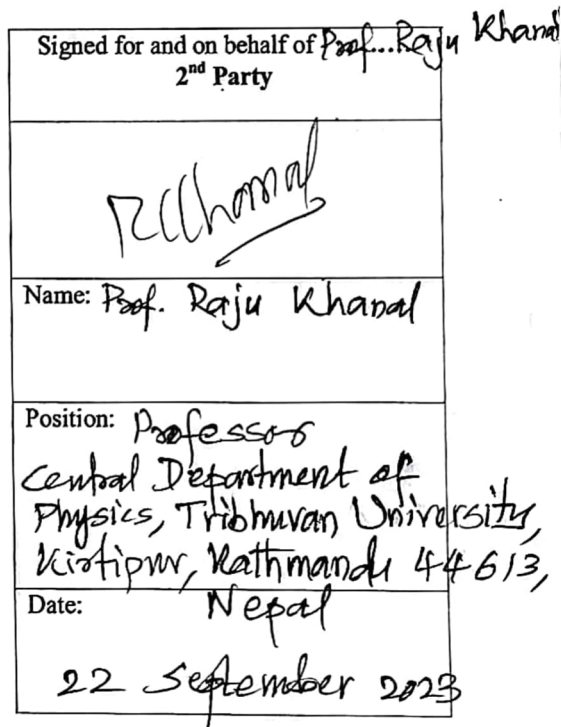 Signed for and on behalf of Prof...Raju Khanal
2nd Party
RKhanal
Name: Prof. Raju Khanal
Position: Professor
Central Department of
Physics, Tribhuvan University,
Kirtipur, Kathmandu 44613,
Nepal
Date:
22 September 2023